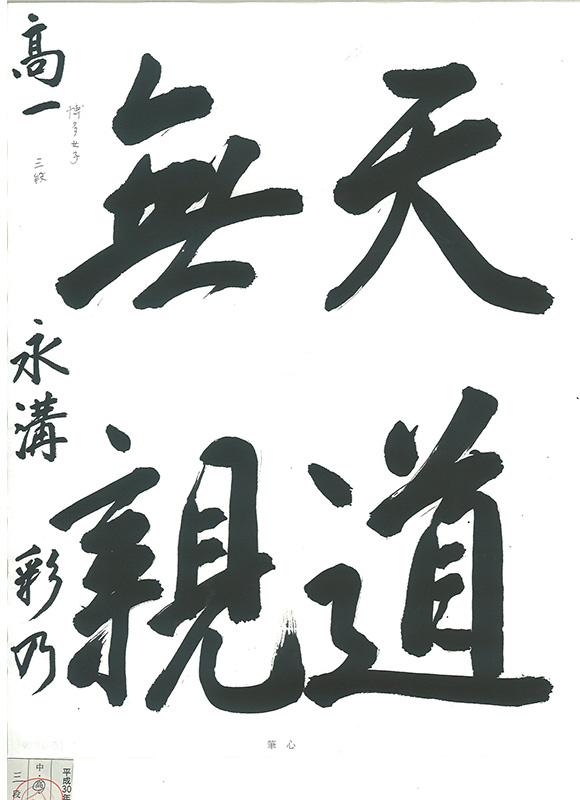 天道
無親
高一 永溝 彩乃
博多女子
三段
筆心
平成30年
中・高
三段